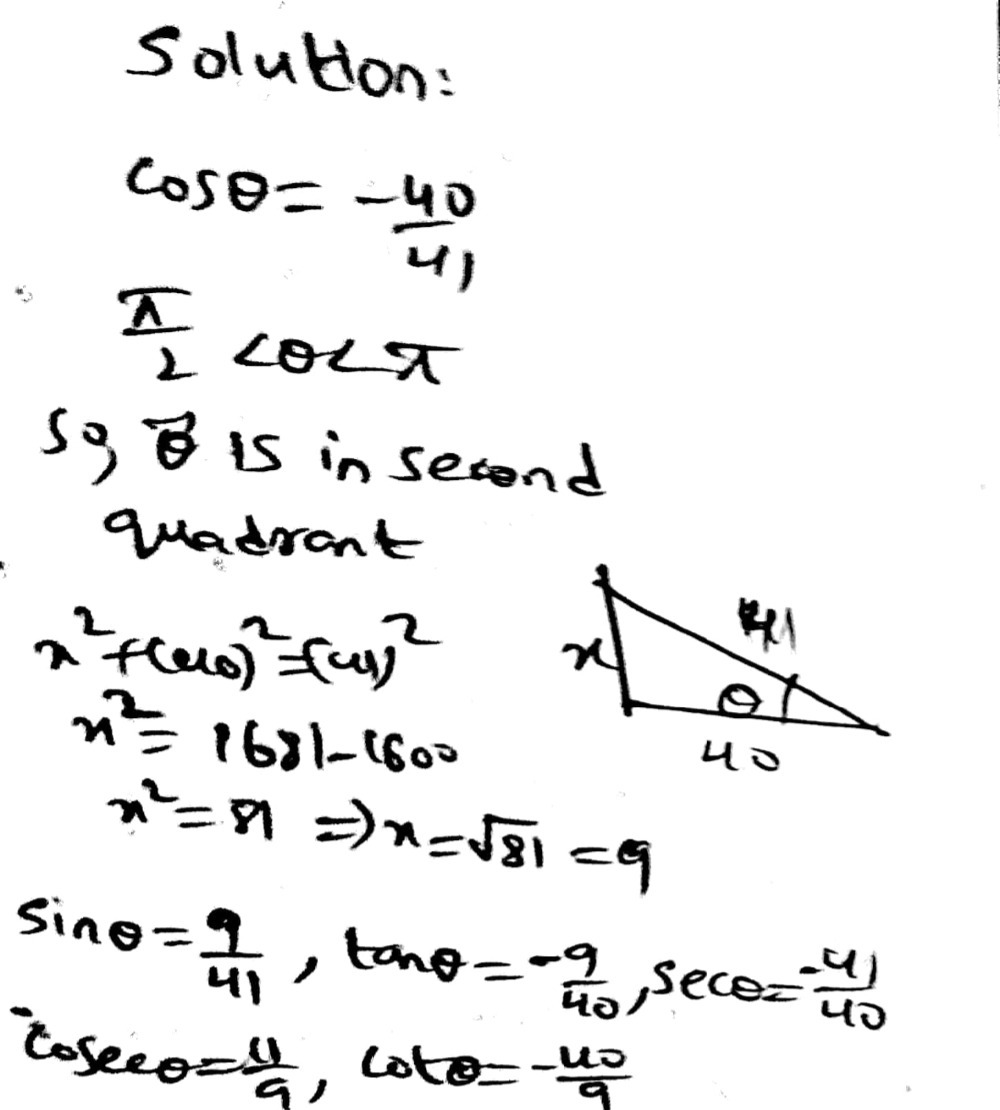 Solution:
cosθ = -40/41
π/2 <θ< π
So, θ is in second
quadrant
x² + (40)² = (41)²
x² = 1681-1600
x² = 81 ⇒ x = √81 = 9
x
41
θ
40
sinθ = 9/41, tanθ = -9/40, secθ = -41/40
cosecθ = 41/9, cotθ = -40/9